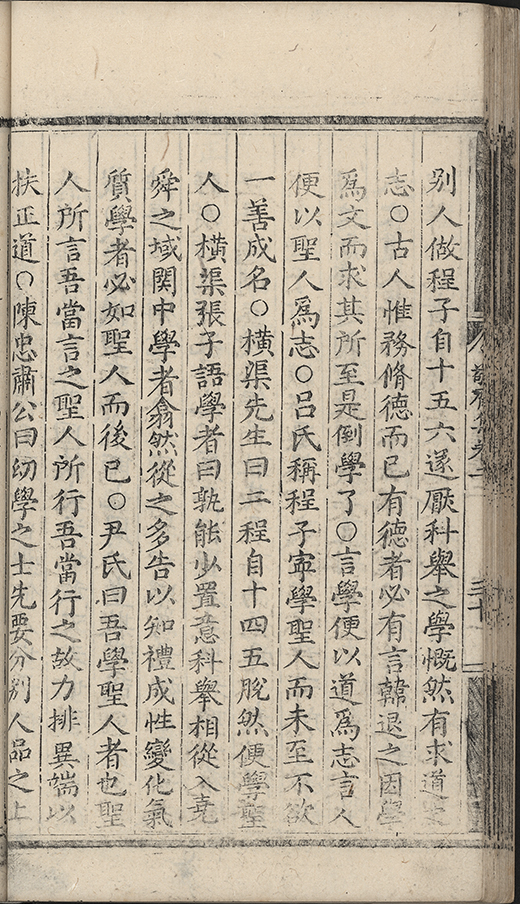 別人做程子自十五六遂厭科舉之學慨然有求道之
志○古人惟務脩德而已有德者必有言韓退之因學
爲文而求其所至是倒學了○言學便以道爲志言人
便以聖人爲志○呂氏稱程子寧學聖人而未至不欲
一善成名○橫渠先生曰二程自十四五脫然便學聖
人○橫渠張子語學者曰孰能少置意科舉相從入堯
舜之域関中學者翕然從之多告以知禮成性變化氣
質學者必如聖人而後已○尹氏曰吾學聖人者也聖
人所言吾當言之聖人所行吾當行之故力排異端以
扶正道○陳忠肅公曰幼學之士先要分別人品之上